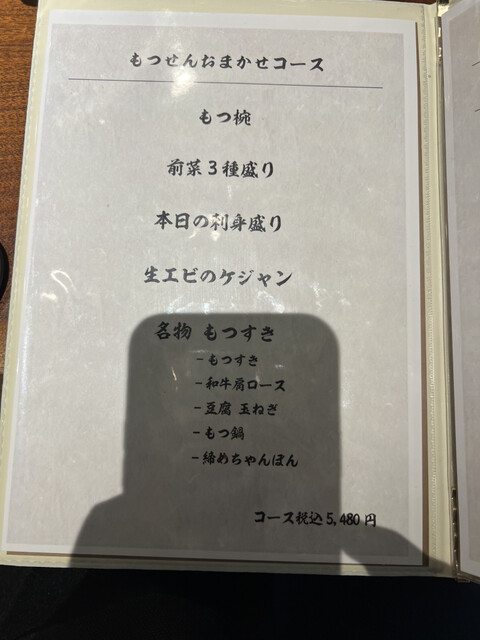 もつせんおまかせコース
もつ椀
前菜3種盛り
本日の刺身盛り
生エビのケジャン
名物 もつすき
-もつすき
-和牛肩ロース
-豆腐 玉ねぎ
-もつ鍋
-締めちゃんぽん
コース税込5,480円